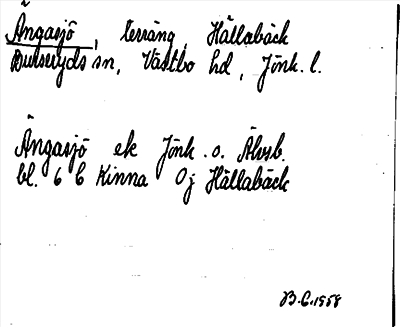 Ängasjö, terräng, Hällabäck
Burseryds sn, Västbo hd, Jönk. l.
Ängasjö ek Jönk. o. Älvsb.
bl. 6 C Kinna 0j Hällabäck
B.C. 1958